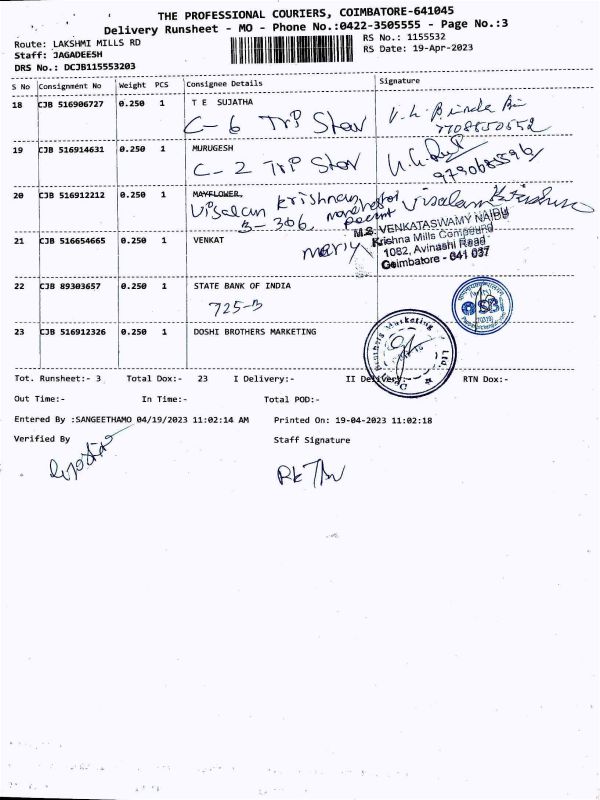 THE PROFESSIONAL COURIERS, COIMBATORE-641045
Delivery Runsheet - MO - Phone No.:0422-3505555 - Page No.:3
Route: LAKSHMI MILLS RD
RS No.: 1155532
Staff: JAGADEESH
RS Date: 19-Apr-2023
DRS No.: DCJB115553203
S No Consignment No Weight PCS Consignee Details Signature
18 CJB 516906727 0.250 1 T E SUJATHA
C-6 Trp Star
19 CJB 516914631 0.250 1 MURUGESH
C-2 Trp Star
20 CJB 516912212 0.250 1 MAYFLOWER,
krishnan
3-306,
M.S. VENKATASWAMY NAIDU
21 CJB 516654665 0.250 1 VENKAT
Krishna Mills Compound
1082, Avinashi Road
Coimbatore - 641 037
22 CJB 89303657 0.250 1 STATE BANK OF INDIA
725-B
23 CJB 516912326 0.250 1 DOSHI BROTHERS MARKETING
Doshi Brothers Marketing Ltd.
Tot. Runsheet:- 3 Total Dox:- 23 I Delivery:- II Delivery:- RTN Dox:-
Out Time:- In Time:- Total POD:-
Entered By :SANGEETHAMO 04/19/2023 11:02:14 AM Printed On: 19-04-2023 11:02:18
Verified By Staff Signature